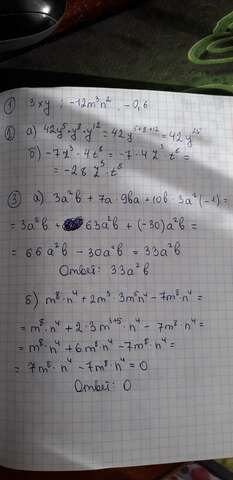 ① 3xy ; -12m³n², -0,6
② а) 42y⁵·y⁸·y¹² = 42y⁵⁺⁸⁺¹² = 42y²⁵
б) -7z³·4t⁶ = -7·4z³t⁶ =
= -28z³·t⁶
③ а) 3a²b + 7a·9ba + 10b·3a²(-1) =
= 3a²b + 63a²b + (-30)a²b =
= 66a²b - 30a²b = 33a²b
Ответ: 33a²b
б) m⁸·n⁴ + 2m³·3m⁵n⁴ - 7m⁸·n⁴ =
= m⁸·n⁴ + 2·3m³⁺⁵·n⁴ - 7m⁸·n⁴ =
= m⁸·n⁴ + 6m⁸·n⁴ - 7m⁸·n⁴ =
= 7m⁸·n⁴ - 7m⁸·n⁴ = 0
Ответ: 0